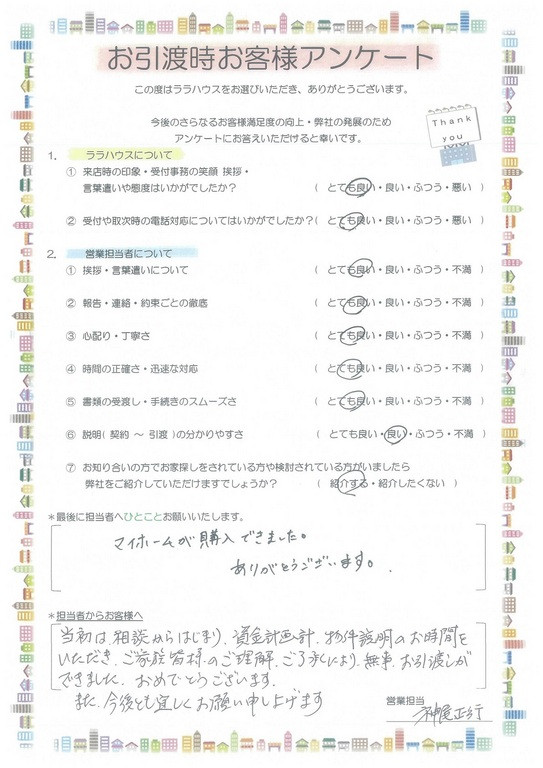 お引渡時お客様アンケート
この度はララハウスをお選びいただき、ありがとうございます。
今後のさらなるお客様満足度の向上・弊社の発展のため
アンケートにお答えいただけると幸いです。
Thank
you
1. ララハウスについて
① 来店時の印象・受付事務の笑顔 挨拶・
言葉遣いや態度はいかがでしたか? ( とても良い・良い・ふつう・悪い )
② 受付や取次時の電話対応についてはいかがでしたか?( とても良い・良い・ふつう・悪い )
2. 営業担当者について
① 挨拶・言葉遣いについて ( とても良い・良い・ふつう・不満 )
② 報告・連絡・約束ごとの徹底 ( とても良い・良い・ふつう・不満 )
③ 心配り・丁寧さ ( とても良い・良い・ふつう・不満 )
④ 時間の正確さ・迅速な対応 ( とても良い・良い・ふつう・不満 )
⑤ 書類の受渡し・手続きのスムーズさ ( とても良い・良い・ふつう・不満 )
⑥ 説明( 契約 ～ 引渡 )の分かりやすさ ( とても良い・良い・ふつう・不満 )
⑦ お知り合いの方でお家探しをされている方や検討されている方がいましたら
弊社をご紹介していただけますでしょうか? ( 紹介する・紹介したくない )
*最後に担当者へひとことお願いいたします。
マイホームが購入できました。
ありがとうございます。
*担当者からお客様へ
当初は、相談からはじまり、資金計画計、物件説明のお時間を
いただき、ご家族皆様のご理解、ご了承により、無事、お引渡しが
できました。おめでとうございます。
また、今後とも宜しくお願い申し上げます
営業担当 神尾正行